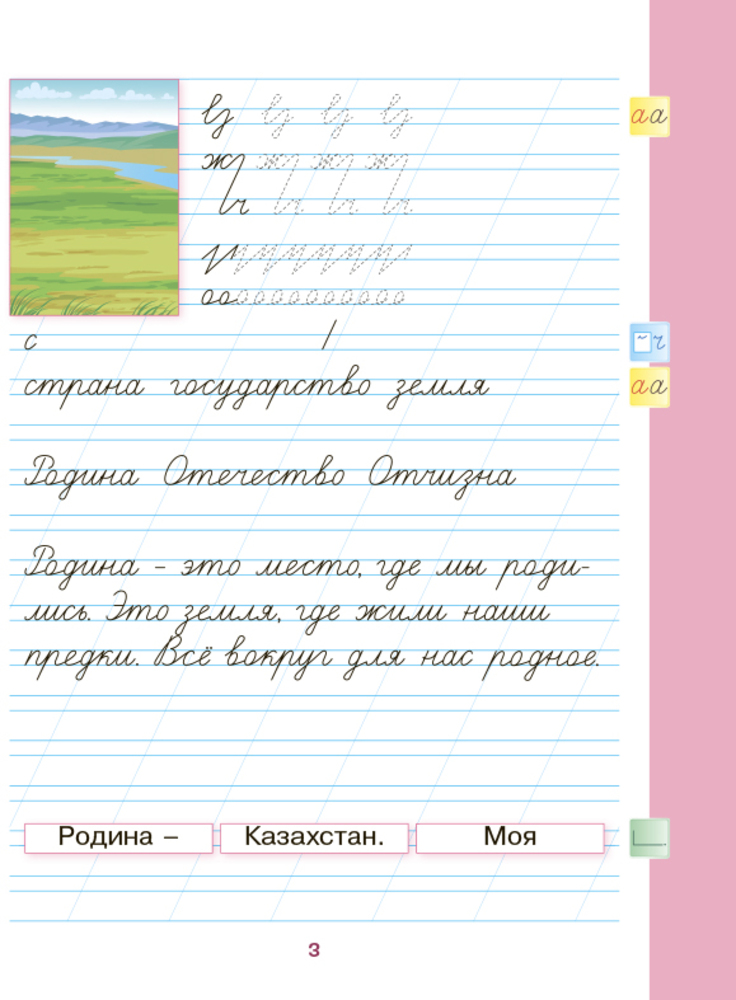 аа
с /
ч
страна государство земля
аа
Родина Отечество Отчизна
Родина – это место, где мы роди-
лись. Это земля, где жили наши
предки. Всё вокруг для нас родное.
Родина – Казахстан. Моя
3